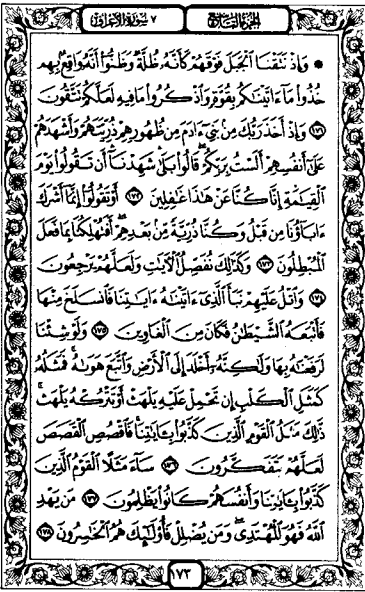 الجزء التاسع
٧ سورة الأعراف
۞ وَإِذْ نَتَقْنَا ٱلْجَبَلَ فَوْقَهُمْ كَأَنَّهُۥ ظُلَّةٌ وَظَنُّوٓا۟ أَنَّهُۥ وَاقِعٌۢ بِهِمْ
خُذُوا۟ مَآ ءَاتَيْنَـٰكُم بِقُوَّةٍ وَٱذْكُرُوا۟ مَا فِيهِ لَعَلَّكُمْ تَتَّقُونَ
﴿١٧١﴾ وَإِذْ أَخَذَ رَبُّكَ مِنۢ بَنِىٓ ءَادَمَ مِن ظُهُورِهِمْ ذُرِّيَّتَهُمْ وَأَشْهَدَهُمْ
عَلَىٰٓ أَنفُسِهِمْ أَلَسْتُ بِرَبِّكُمْ ۖ قَالُوا۟ بَلَىٰ ۛ شَهِدْنَآ ۛ أَن تَقُولُوا۟ يَوْمَ
ٱلْقِيَـٰمَةِ إِنَّا كُنَّا عَنْ هَـٰذَا غَـٰفِلِينَ ﴿١٧٢﴾ أَوْ تَقُولُوٓا۟ إِنَّمَآ أَشْرَكَ
ءَابَآؤُنَا مِن قَبْلُ وَكُنَّا ذُرِّيَّةً مِّنۢ بَعْدِهِمْ ۖ أَفَتُهْلِكُنَا بِمَا فَعَلَ
ٱلْمُبْطِلُونَ ﴿١٧٣﴾ وَكَذَٰلِكَ نُفَصِّلُ ٱلْـَٔايَـٰتِ وَلَعَلَّهُمْ يَرْجِعُونَ
﴿١٧٤﴾ وَٱتْلُ عَلَيْهِمْ نَبَأَ ٱلَّذِىٓ ءَاتَيْنَـٰهُ ءَايَـٰتِنَا فَٱنسَلَخَ مِنْهَا
فَأَتْبَعَهُ ٱلشَّيْطَـٰنُ فَكَانَ مِنَ ٱلْغَاوِينَ ﴿١٧٥﴾ وَلَوْ شِئْنَا
لَرَفَعْنَـٰهُ بِهَا وَلَـٰكِنَّهُۥٓ أَخْلَدَ إِلَى ٱلْأَرْضِ وَٱتَّبَعَ هَوَىٰهُ ۚ فَمَثَلُهُۥ
كَمَثَلِ ٱلْكَلْبِ إِن تَحْمِلْ عَلَيْهِ يَلْهَثْ أَوْ تَتْرُكْهُ يَلْهَث ۚ
ذَّٰلِكَ مَثَلُ ٱلْقَوْمِ ٱلَّذِينَ كَذَّبُوا۟ بِـَٔايَـٰتِنَا ۚ فَٱقْصُصِ ٱلْقَصَصَ
لَعَلَّهُمْ يَتَفَكَّرُونَ ﴿١٧٦﴾ سَآءَ مَثَلًا ٱلْقَوْمُ ٱلَّذِينَ
كَذَّبُوا۟ بِـَٔايَـٰتِنَا وَأَنفُسَهُمْ كَانُوا۟ يَظْلِمُونَ ﴿١٧٧﴾ مَن يَهْدِ
ٱللَّهُ فَهُوَ ٱلْمُهْتَدِى ۖ وَمَن يُضْلِلْ فَأُو۟لَـٰٓئِكَ هُمُ ٱلْخَـٰسِرُونَ ﴿١٧٨﴾
١٧٣